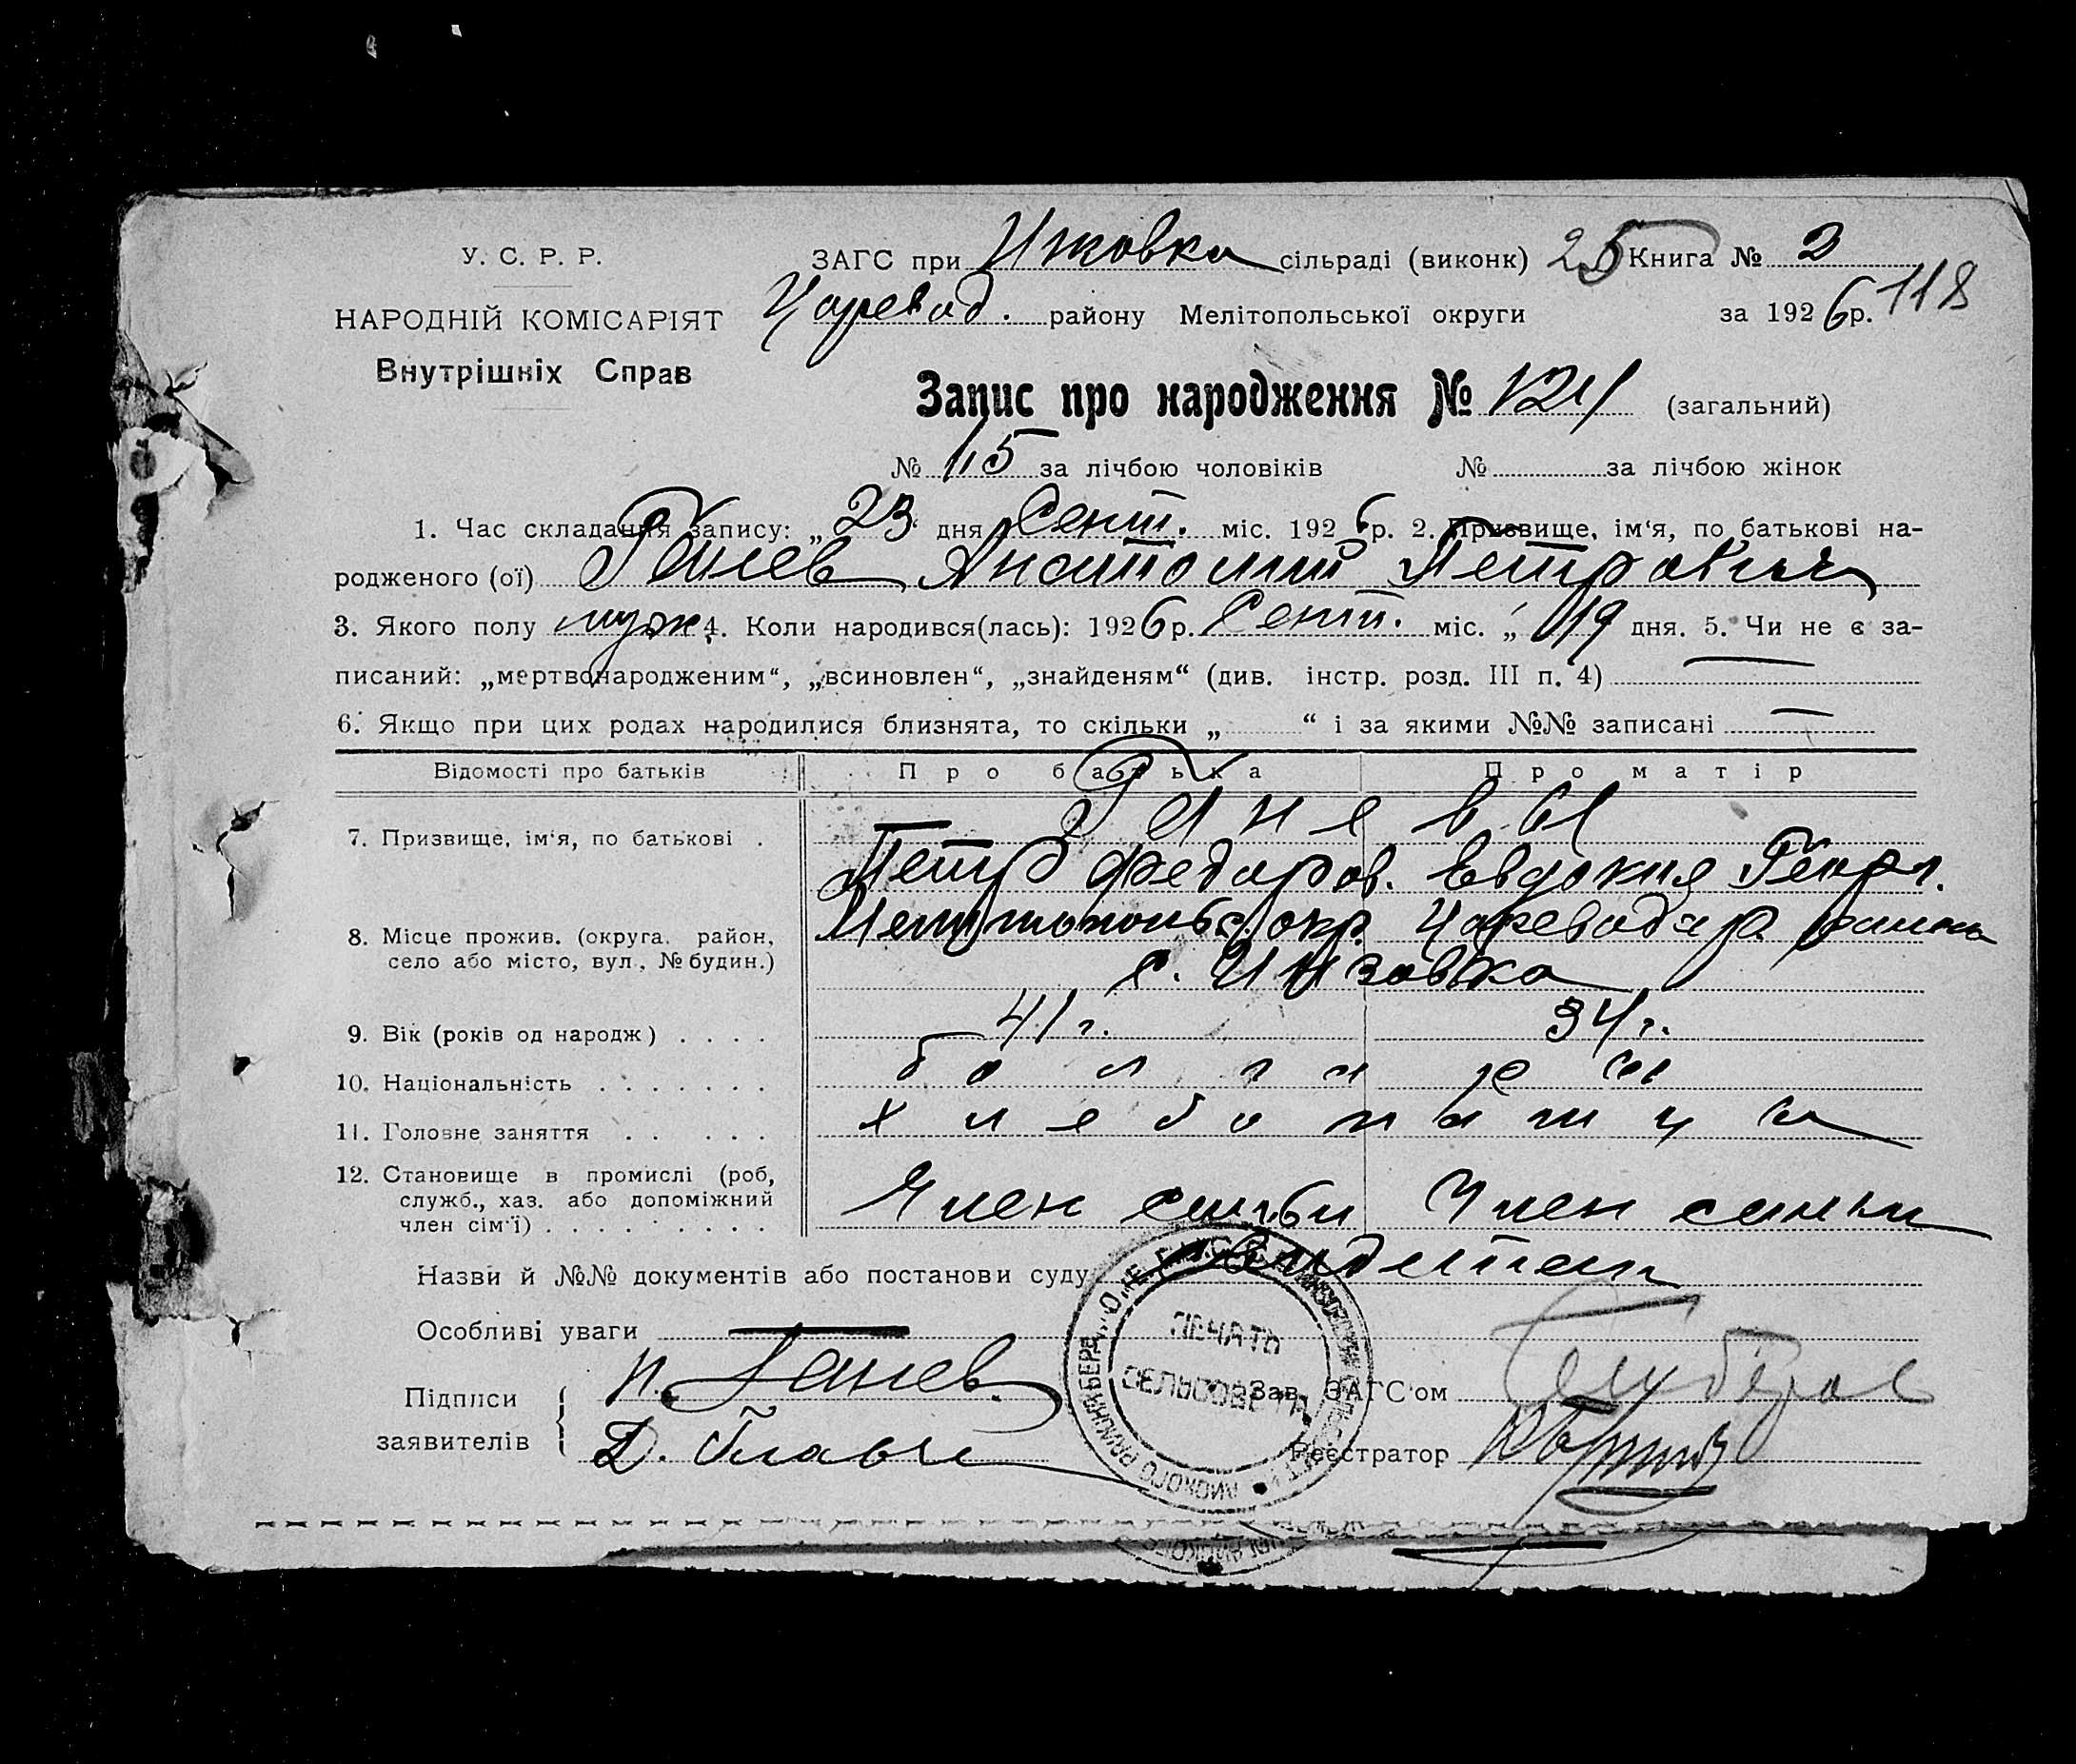 У. С. Р. Р.
НАРОДНІЙ КОМІСАРІЯТ
Внутрішніх Справ
ЗАГС при сільраді (виконк) 25 Книга № 2
Царевод. району Мелітопольської округи за 1926 р. 118
Запис про народження № 121 (загальний)
№ 115 за лічбою чоловіків № за лічбою жінок
1. Час складання запису: „23“ дня Сент. міс. 1926 р. 2. Призвище, ім‘я, по батькові на-
родженого (ої) Ганев Анатолий Петрович
3. Якого полу муж. 4. Коли народився(лась): 1926 р. Сент. міс. „19 дня. 5. Чи не є за-
писаний: „мертвонародженим“, „всиновлен“, „знайденям“ (див. інстр. розд. III п. 4) —
6. Якщо при цих родах народилися близнята, то скільки „ “ і за якими №№ записані —
Відомості про батьків Про батька Про матір
7. Призвище, ім‘я, по батькові . Ганевы
Петр Федоров. Евдокия
8. Місце прожив. (округа, район, село або місто, вул., № будин.) Мелитопольс. окр. района
с. Инзовка
9. Вік (років од народж) . . . . 41 г. 34 г.
10. Національність . . . . . . . болгары
11. Головне заняття . . . . . . хлебопашцы
12. Становище в промислі (роб,
служб., хаз. або допоміжний
член сім‘ї) . . . . . . . . . Член семьи Член семьи
Назви й №№ документів або постанови суду
Особливі уваги —
Підписи
заявителів
П. Ганев.
Д.
ПЕЧАТЬ
СЕЛЬСОВЕТА
Зав. ЗАГС‘ом
Реєстратор